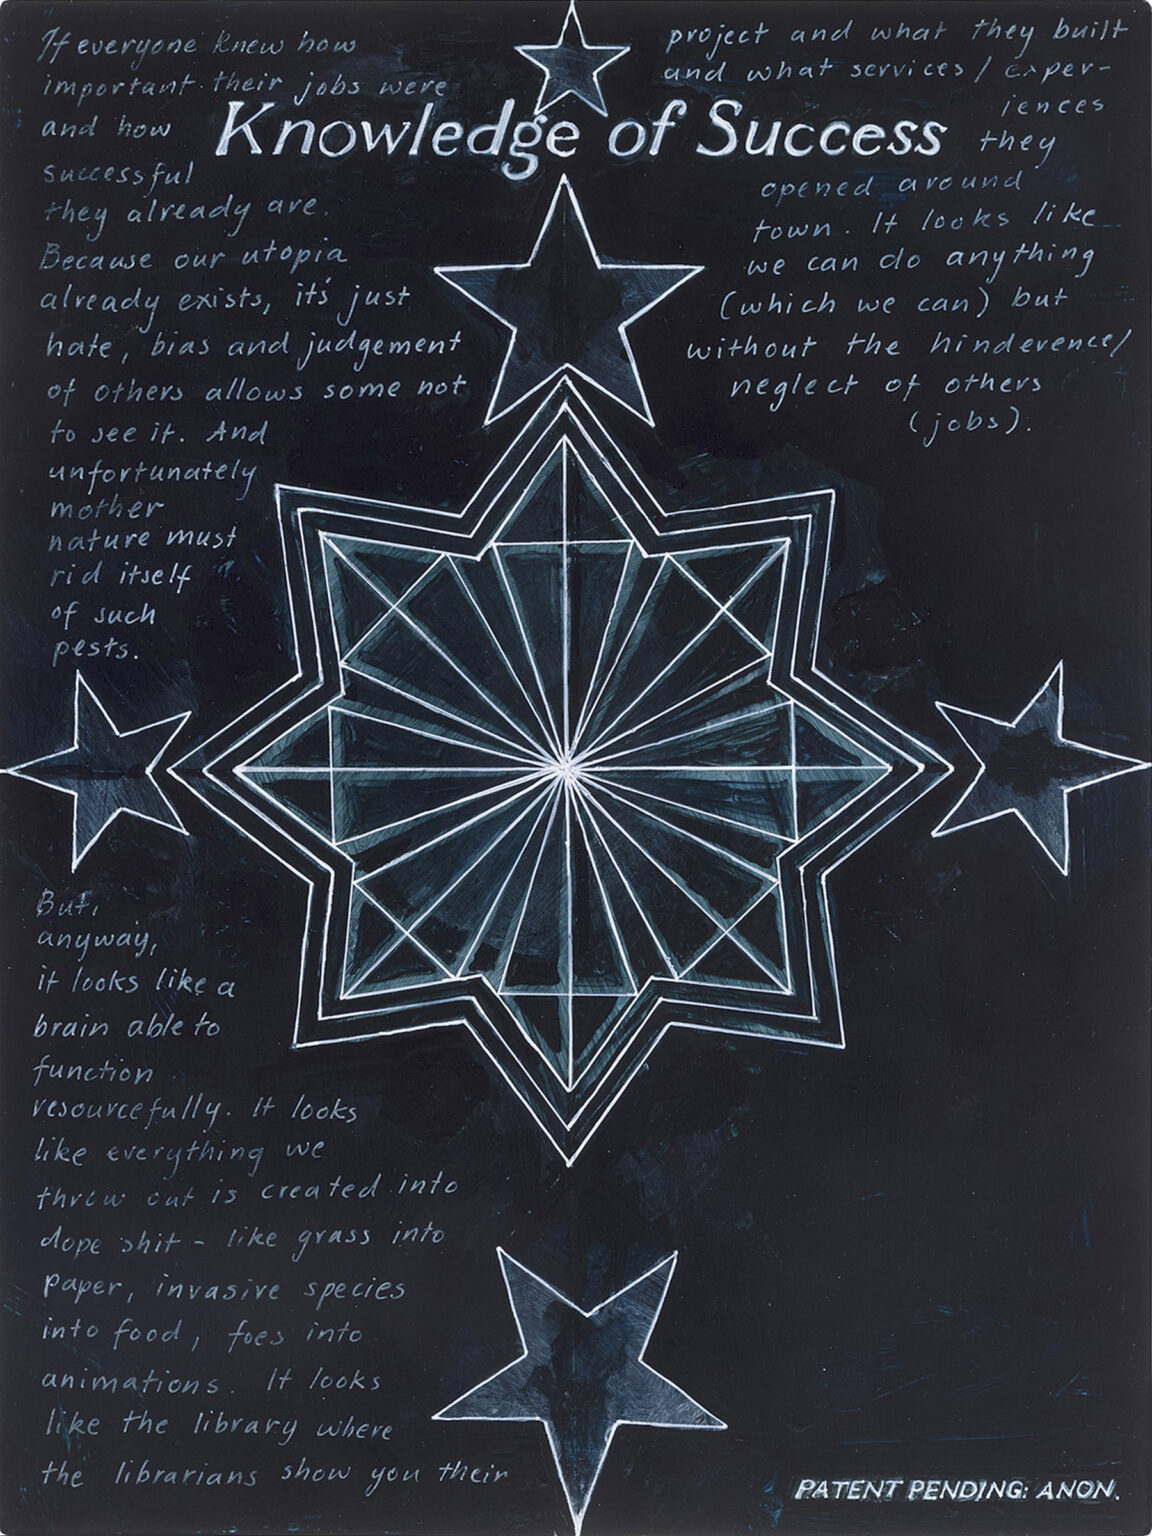 Knowledge of Success
If everyone knew how
important their jobs were
and how
successful
they already are.
Because our utopia
already exists, it's just
hate, bias and judgement
of others allows some not
to see it. And
unfortunately
mother
nature must
rid itself
of such
pests.
But,
anyway,
it looks like a
brain able to
function
resourcefully. It looks
like everything we
throw out is created into
dope shit - like grass into
paper, invasive species
into food, foes into
animations. It looks
like the library where
the librarians show you their
project and what they built
and what services / exper-
iences
they
opened around
town. It looks like
we can do anything
(which we can) but
without the hinderence/
neglect of others
(jobs).
PATENT PENDING: ANON.